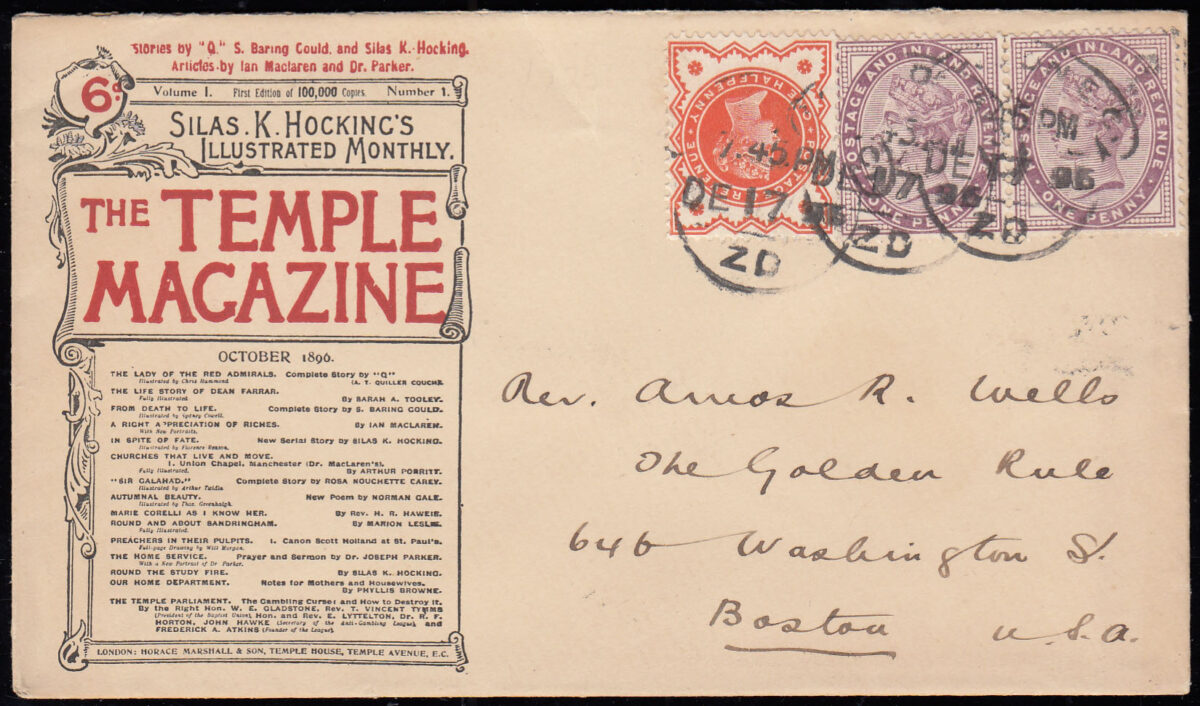 Stories by "Q." S. Baring Gould, and Silas K. Hocking.
Articles by Ian Maclaren and Dr. Parker.
6d
Volume I. First Edition of 100,000 Copies. Number 1.
SILAS. K. HOCKING'S
ILLUSTRATED MONTHLY.
THE TEMPLE
MAGAZINE
OCTOBER 1896.
THE LADY OF THE RED ADMIRALS. Complete Story by "Q"
Illustrated by Chris Hammond (A. T. QUILLER COUCH).
THE LIFE STORY OF DEAN FARRAR.
Fully Illustrated By SARAH A. TOOLEY.
FROM DEATH TO LIFE. Complete Story by S. BARING GOULD.
Illustrated by Sydney Cowell.
A RIGHT APPRECIATION OF RICHES. By IAN MACLAREN.
With New Portraits.
IN SPITE OF FATE. New Serial Story by SILAS K. HOCKING.
Illustrated by Florence
CHURCHES THAT LIVE AND MOVE.
1. Union Chapel, Manchester (Dr. MacLaren's).
Fully Illustrated. By ARTHUR PORRITT.
"SIR GALAHAD." Complete Story by ROSA NOUCHETTE CAREY.
Illustrated by Arthur Twidle
AUTUMNAL BEAUTY. New Poem by NORMAN GALE.
Illustrated by Thos. Greenhalgh.
MARIE CORELLI AS I KNOW HER. By Rev. H. R. HAWEIS.
ROUND AND ABOUT SANDRINGHAM. By MARION LESLIE.
Fully Illustrated.
PREACHERS IN THEIR PULPITS. 1. Canon Scott Holland at St. Paul's.
Full-page Drawing by Will Morgan.
THE HOME SERVICE. Prayer and Sermon by Dr. JOSEPH PARKER.
With a New Portrait of Dr Parker.
ROUND THE STUDY FIRE. By SILAS K. HOCKING.
OUR HOME DEPARTMENT. Notes for Mothers and Housewives.
By PHYLLIS BROWNE.
THE TEMPLE PARLIAMENT. The Gambling Curse: and How to Destroy it.
By the Right Hon. W. E. GLADSTONE, Rev. T. VINCENT TYMMS
(President of the Baptist Union), Hon. and Rev. E. LYTTELTON, Dr. R. F.
HORTON, JOHN HAWKE (Secretary of the Anti-Gambling League), and
FREDERICK A. ATKINS (Founder of the League).
LONDON: HORACE MARSHALL & SON, TEMPLE HOUSE, TEMPLE AVENUE, E.C.
POSTAGE REVENUE HALFPENNY
POSTAGE AND INLAND REVENUE
ONE PENNY
POSTAGE AND INLAND REVENUE
ONE PENNY
7.45 PM
DE 17
96
ZD
DE 17
96
ZD
PM
DE 17
96
ZD
Rev. Amos R. Wells
The Golden Rule
646 Washington St.
Boston U.S.A.